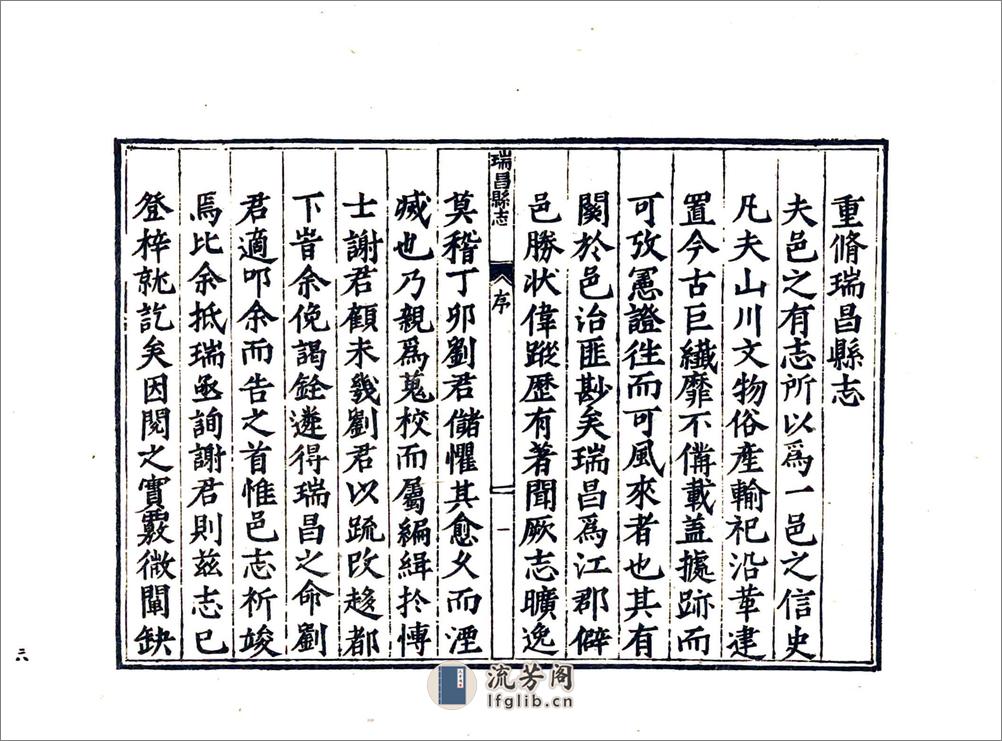 重脩瑞昌縣志
夫邑之有志所以爲一邑之信史
凡夫山川文物俗產輸祀沿革建
置今古巨纎靡不備載盖據跡而
可攷憲證徃而可風來者也其有
関於邑治匪尠矣瑞昌爲江郡僻
邑勝状偉蹤歴有著聞厥志曠逸
瑞昌縣志
序
一
莫稽丁夘劉君儲懼其愈久而湮
㓕也乃親爲蒐校而屬編緝扵慱
士謝君顧未幾劉君以䟽改趍都
下旹余俛謁銓遴得瑞昌之命劉
君適叩余而告之首惟邑志祈竣
焉比余抵瑞亟詢謝君則兹志已
登梓就訖矣因閲之實覈微闡缺
六
流芳阁
lfglib.cn